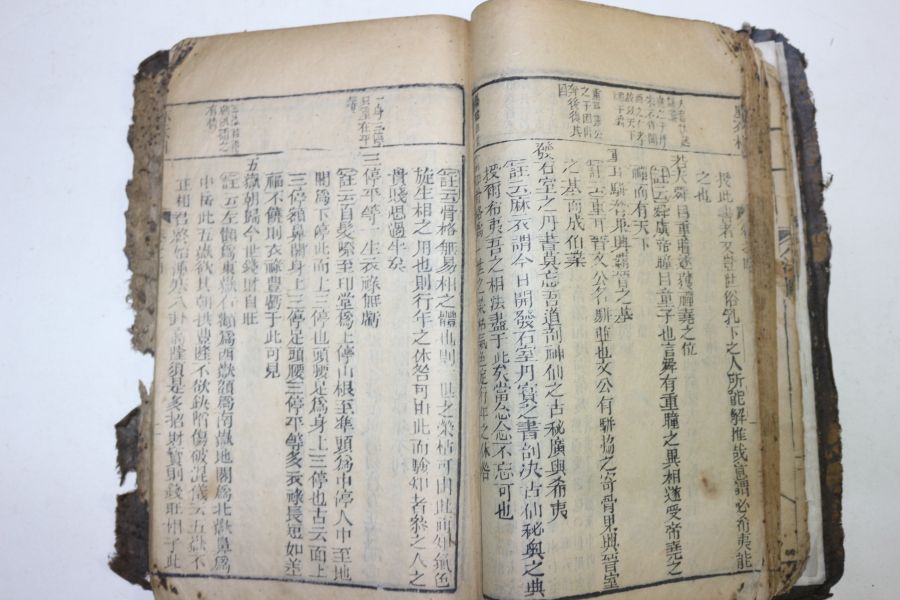 授此書者又豈世俗乳下之人所能解推哉直謂必希夷能
之也
若夫舜目重瞳遂獲禪堯之位
註云舜虞帝瞳目童子也言舜有重瞳之異相遂受帝堯之
禪而有天下
重耳駢脅果興霸晉之基
註云重耳晉文公名駢並也文公有駢脇之奇骨果興晉室
之基而成伯業
發石室之丹書莫忘吾道剖神仙之古秘廣與希夷
註云麻衣謂今日開發石室丹寶之書剖決古仙秘奧之典
授爾希夷吾之相法盡于此矣當念念不忘可也
骨格為一世之榮枯氣色定行年之休咎
註云骨格無易相之體也則一世之榮枯可由此而知氣色
旋生相之用也則行年之休咎可由此而驗知者參之人之
丹賤思過半矣
三停平等一生衣祿無虧
註云自髮際至印堂為上停山根至準頭為中停人中至地
閣為下停此面上三停也頭腰足為身上三停也古云面上
三停額鼻閣身上三停足頭腰三停平等多衣祿長短如差
福不饒則衣祿豐虧于此可見
五嶽朝歸今世錢財自旺
註云左顴為東嶽右顴為西嶽額為南嶽地閣為北嶽鼻為
中岳此五嶽欲其朝拱豊隆不欲缺陷傷破混儀云五嶽不
正相君終始薄八卦高隆須是多招財寶則錢旺相于此